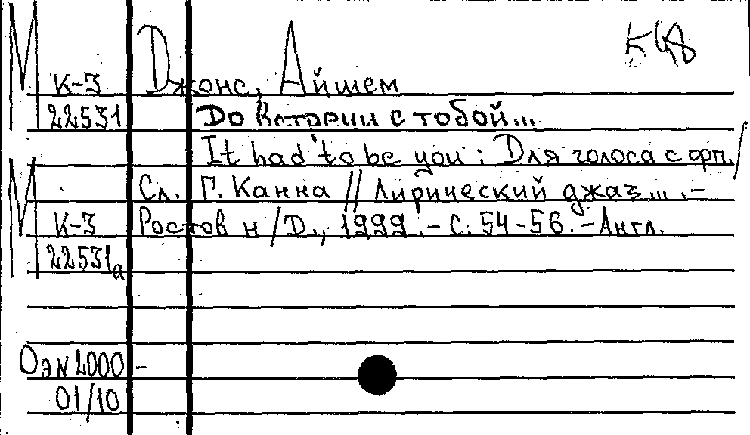 М
К-3
22531
Джонс, Айшем
До встречи с тобой...
It had to be you : Для голоса с фп. /
Сл. Г. Канна // Лирический джаз... . -
Ростов н/Д., 1999. - С. 54-56. - Англ.
М
К-3
22531а
ОЭN2000 -
01/10